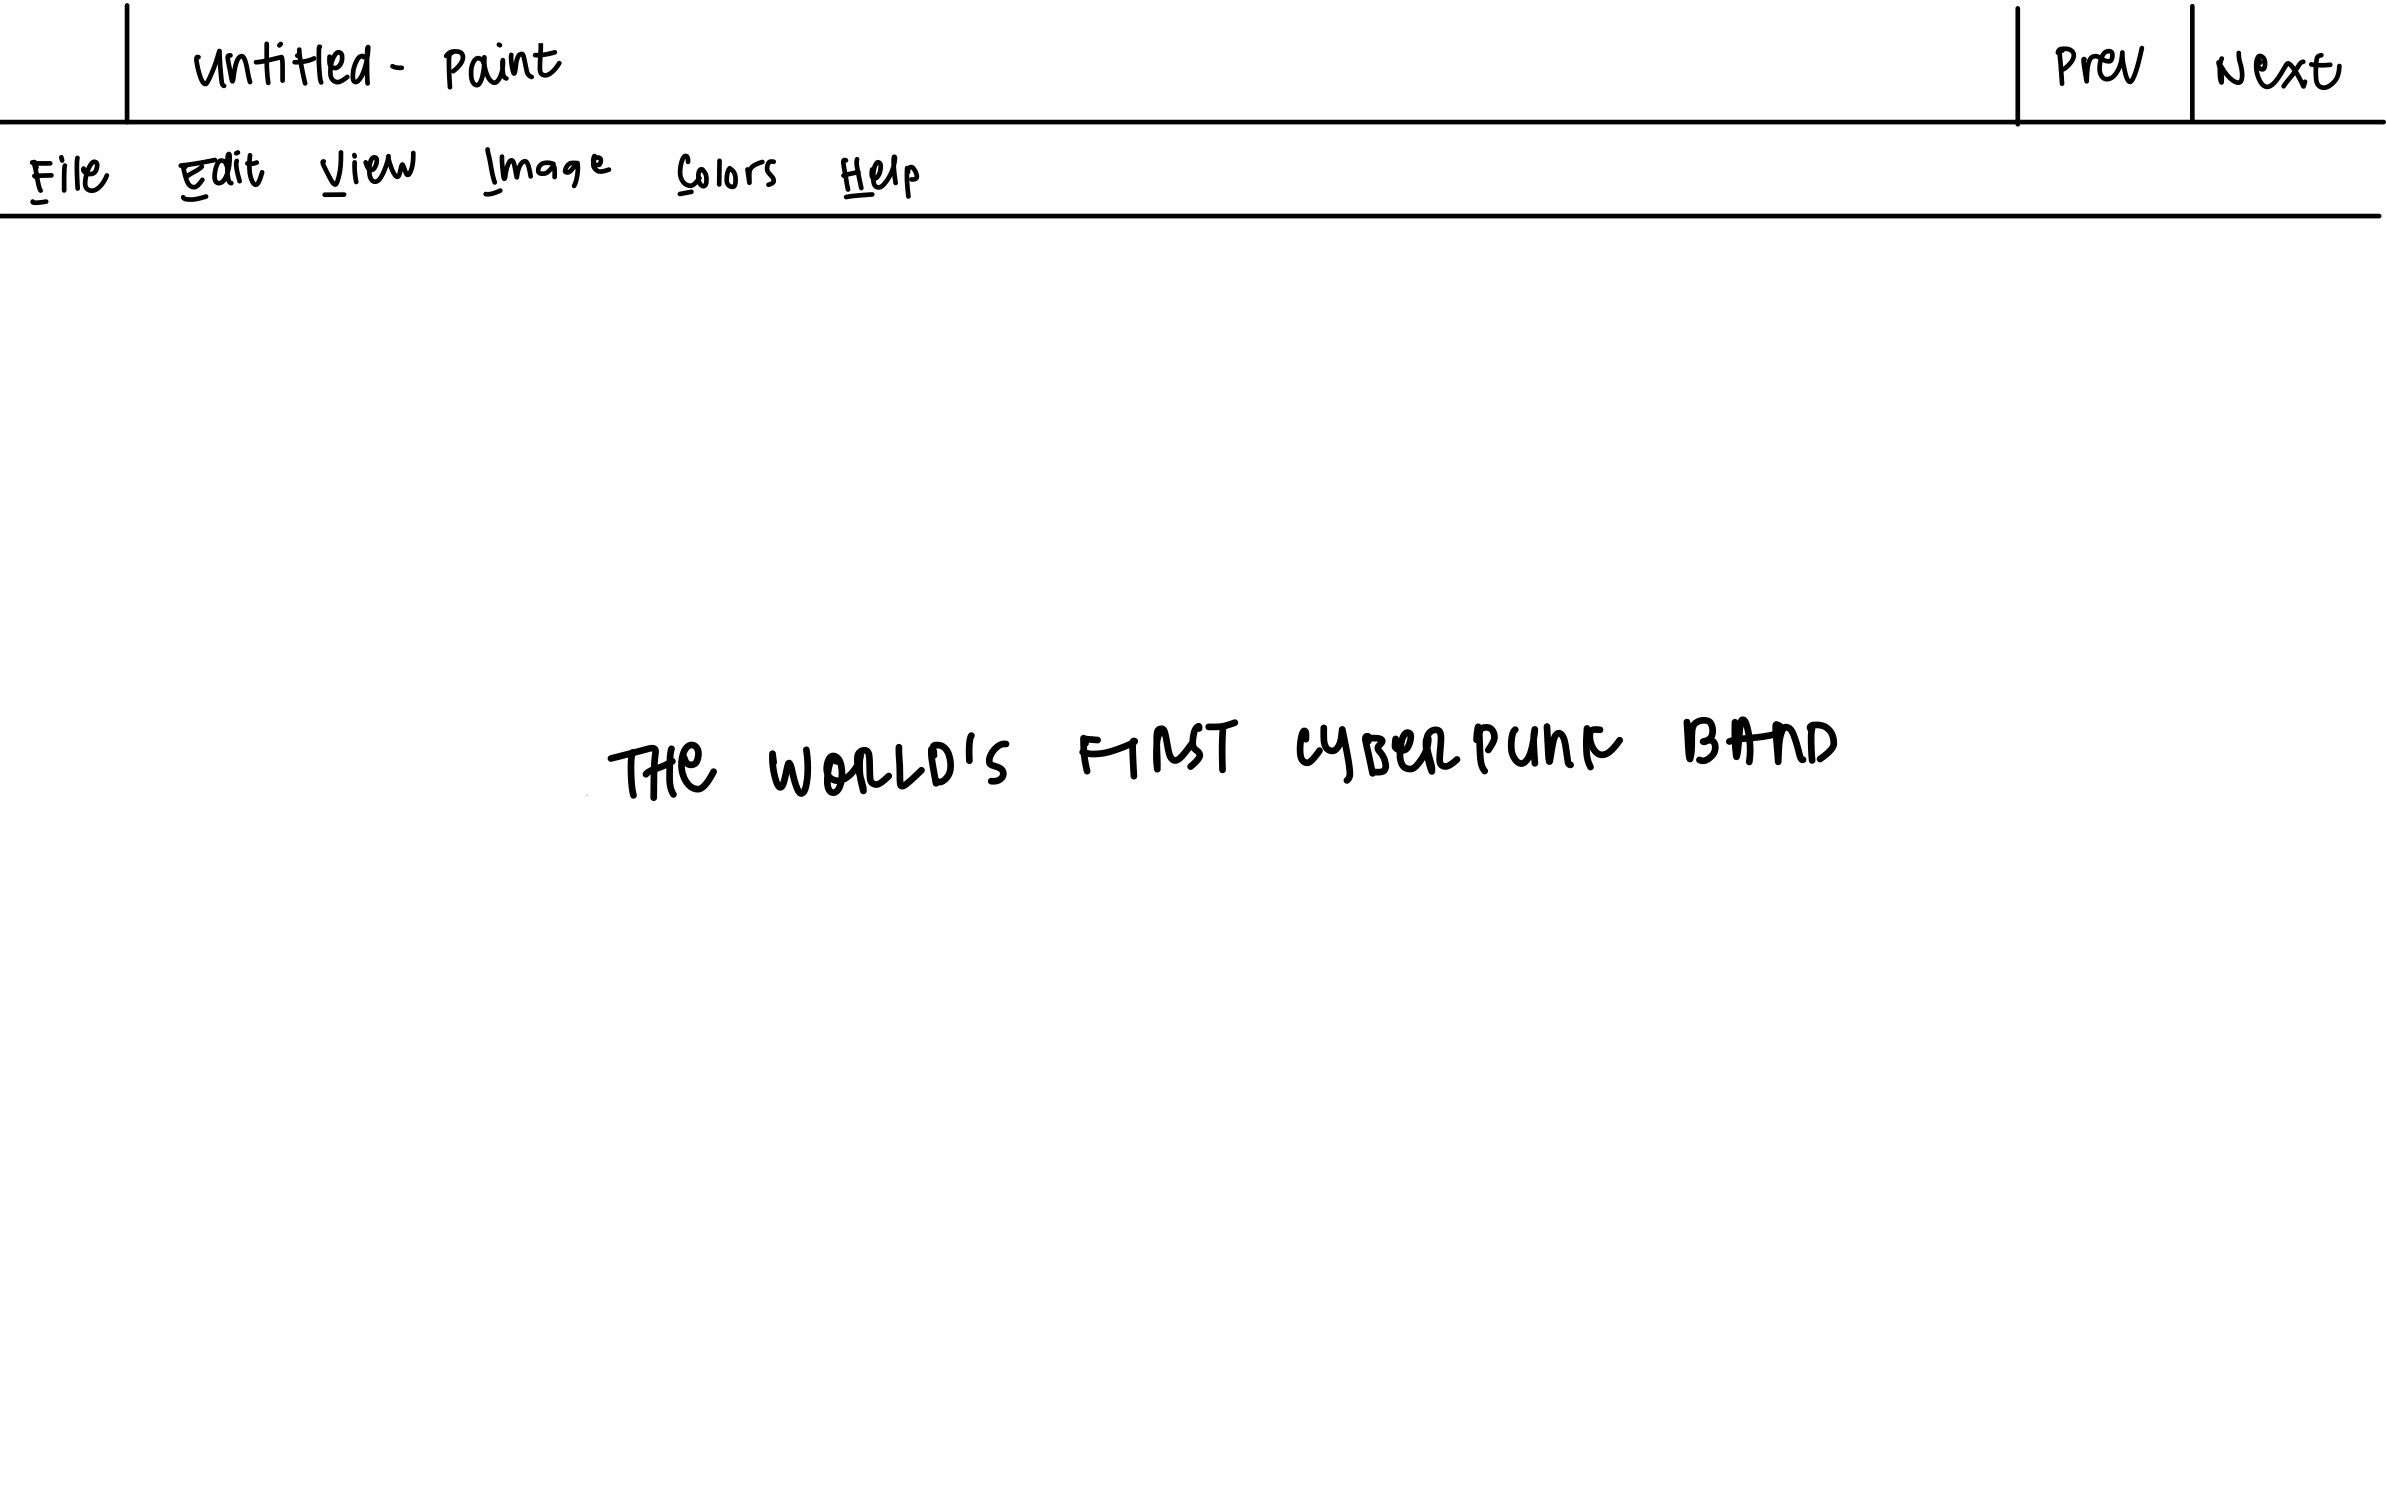 Untitled - Paint Prev Next
File Edit View Image Colors Help
THE WORLD'S FIRST CYBERPUNK BAND